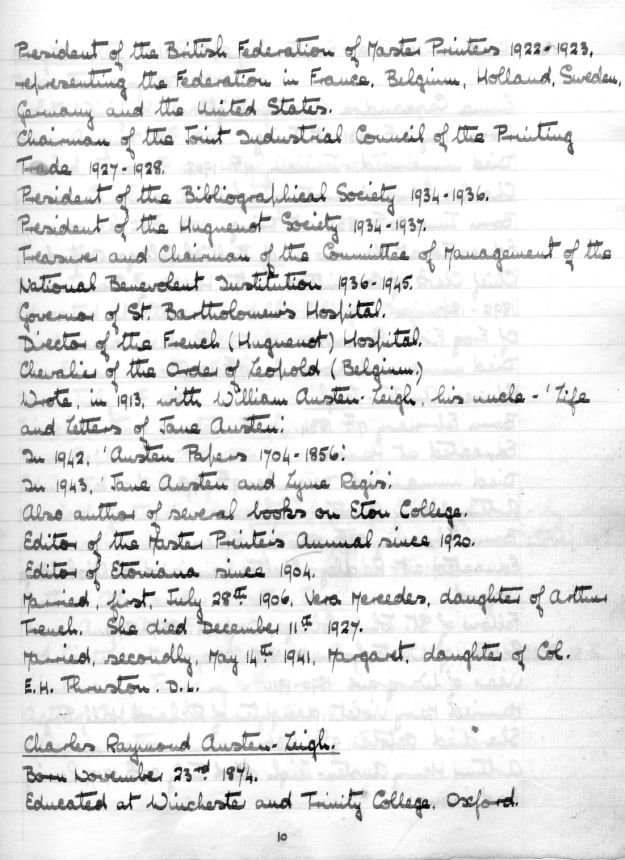 President of the British Federation of Master Printers 1922-1923,
representing the Federation in France, Belgium, Holland, Sweden,
Germany and the United States.
Chairman of the Joint Industrial Council of the Printing
Trade 1927-1928.
President of the Bibliographical Society 1934-1936.
President of the Huguenot Society 1934-1937.
Treasurer and Chairman of the Committee of Management of the
National Benevolent Institution 1936-1945.
Governor of St. Bartholomew's Hospital.
Director of the French (Huguenot) Hospital.
Chevalier of the Order of Leopold (Belgium.)
Wrote, in 1913, with William Austen-Leigh, his uncle - 'Life
and Letters of Jane Austen.'
In 1942, 'Austen Papers 1704-1856.'
In 1943, 'Jane Austen and Lyme Regis.'
Also author of several books on Eton College.
Editor of the Master Printers Annual since 1920.
Editor of Etoniana since 1904.
Married, first, July 28th 1906, Vera Mercedes, daughter of Arthur
French. She died December 11th 1927.
Married, secondly, May 14th 1941, Margaret, daughter of Col.
E.H. Thruston. D.L.
Charles Raymond Austen-Leigh.
Born November 23rd 1874.
Educated at Winchester and Trinity College, Oxford.
10